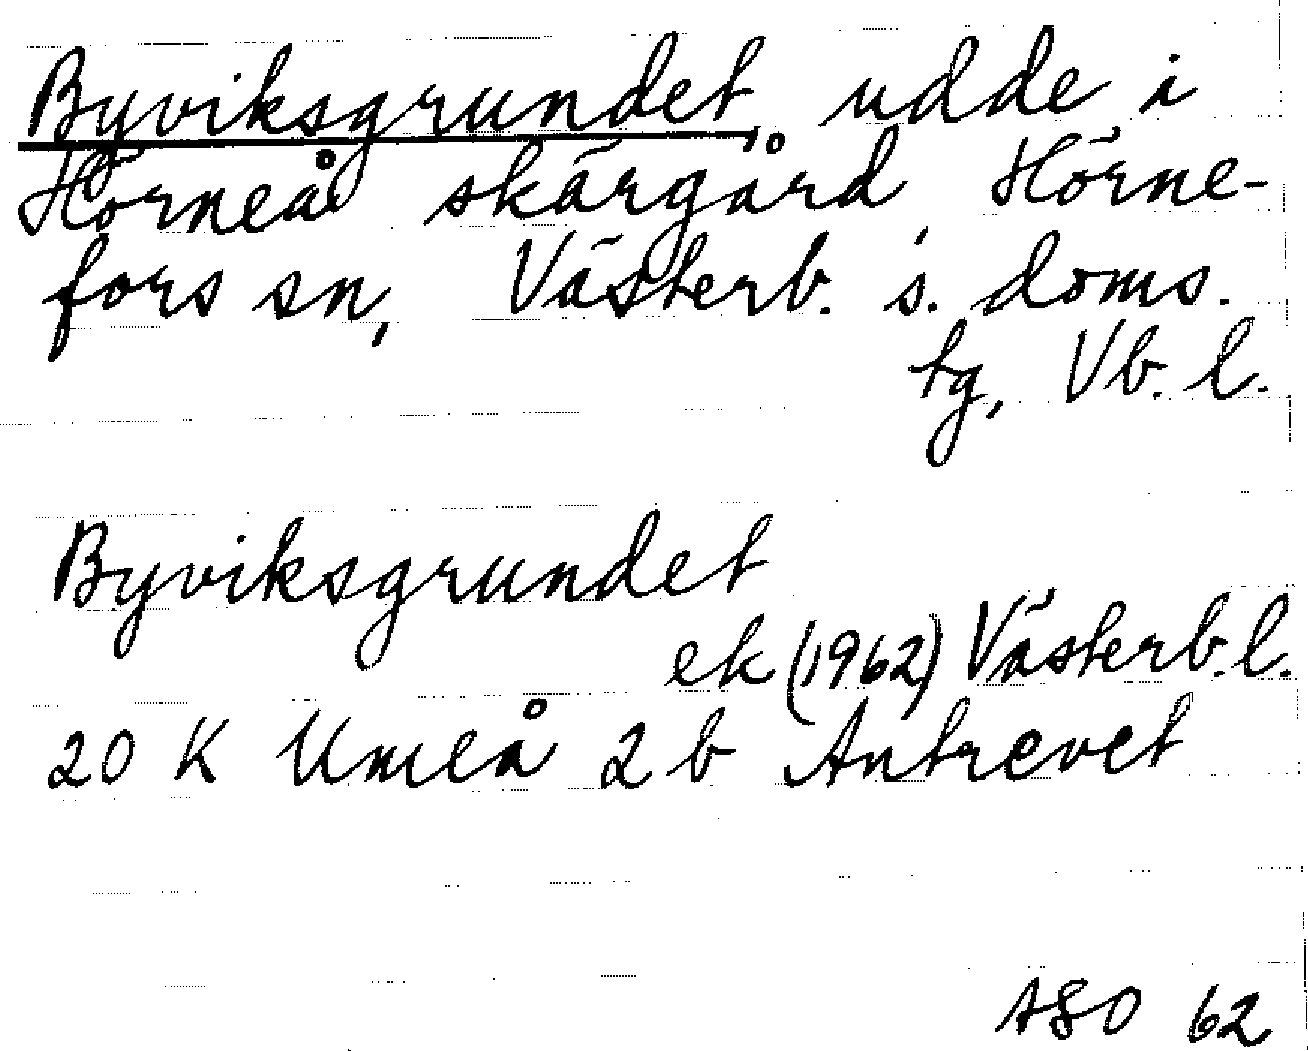 Byviksgrundet, udde i
Hörneå skärgård Hörne-
fors sn, Västerb. s. doms.
tg, Vb. l.
Byviksgrundet
ek (1962) Västerb. l.
20 K Umeå 2 b Antrevet
ASO 62